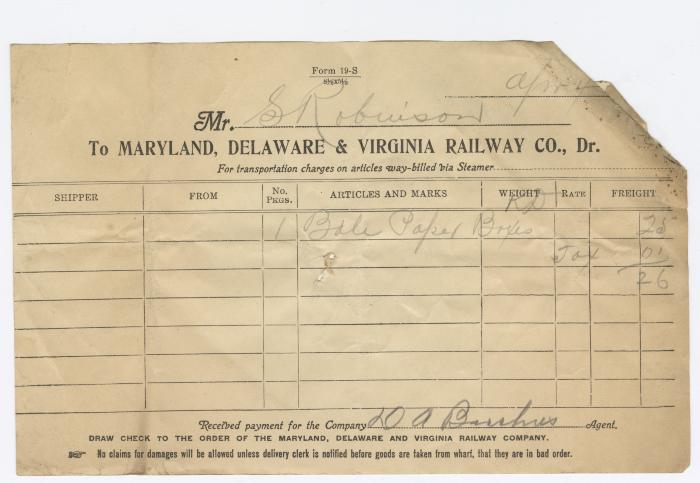 Form 19-S
Apr
Mr. S Robinson
To MARYLAND, DELAWARE & VIRGINIA RAILWAY CO., Dr.
For transportation charges on articles way-billed via Steamer
SHIPPER FROM No. PKGS. ARTICLES AND MARKS WEIGHT RATE FREIGHT
KD
1 Bale Paper Boxes 25
Tax 01
26
Received payment for the Company D A Agent.
DRAW CHECK TO THE ORDER OF THE MARYLAND, DELAWARE AND VIRGINIA RAILWAY COMPANY.
No claims for damages will be allowed unless delivery clerk is notified before goods are taken from wharf, that they are in bad order.